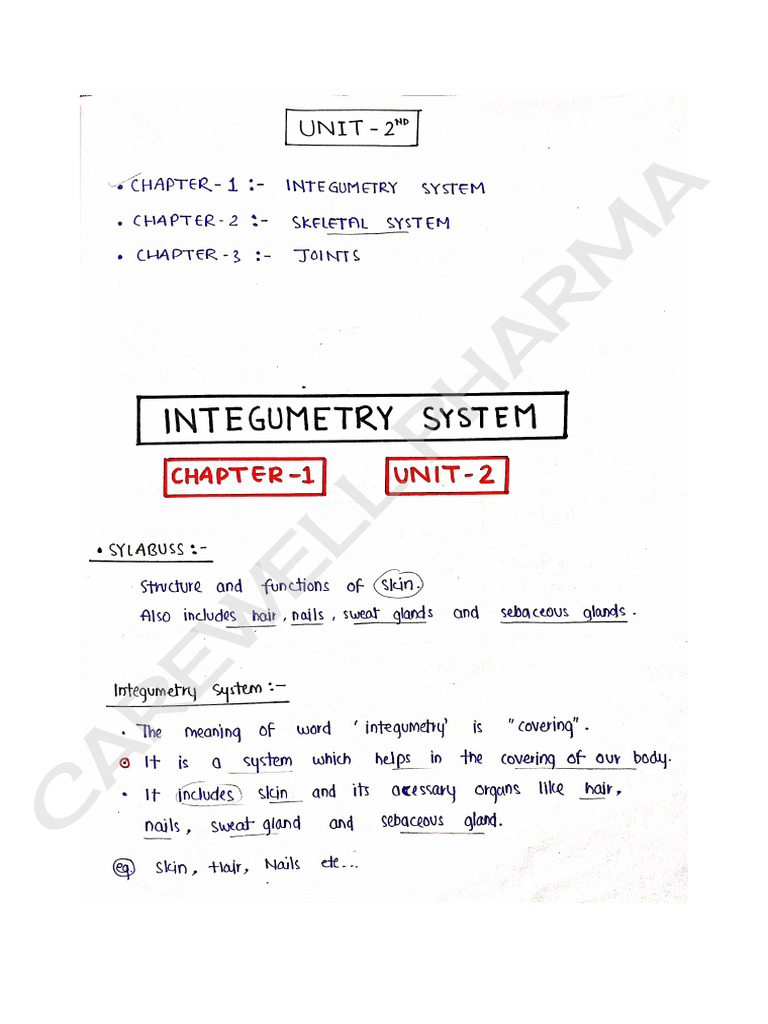 UNIT - 2ND
• CHAPTER - 1 :- INTEGUMETRY SYSTEM
• CHAPTER - 2 :- SKELETAL SYSTEM
• CHAPTER - 3 :- JOINTS
INTEGUMETRY SYSTEM
CHAPTER -1 UNIT - 2
• SYLABUSS :-
Structure and functions of skin.
Also includes hair, nails, sweat glands and sebaceous glands.
Integumetry System :-
• The meaning of word 'integumetry' is "covering".
It is a system which helps in the covering of our body.
• It includes skin and its accessary organs like hair,
nails, sweat gland and sebaceous gland.
eg. Skin, Hair, Nails etc...
CAREWELL PHARMA